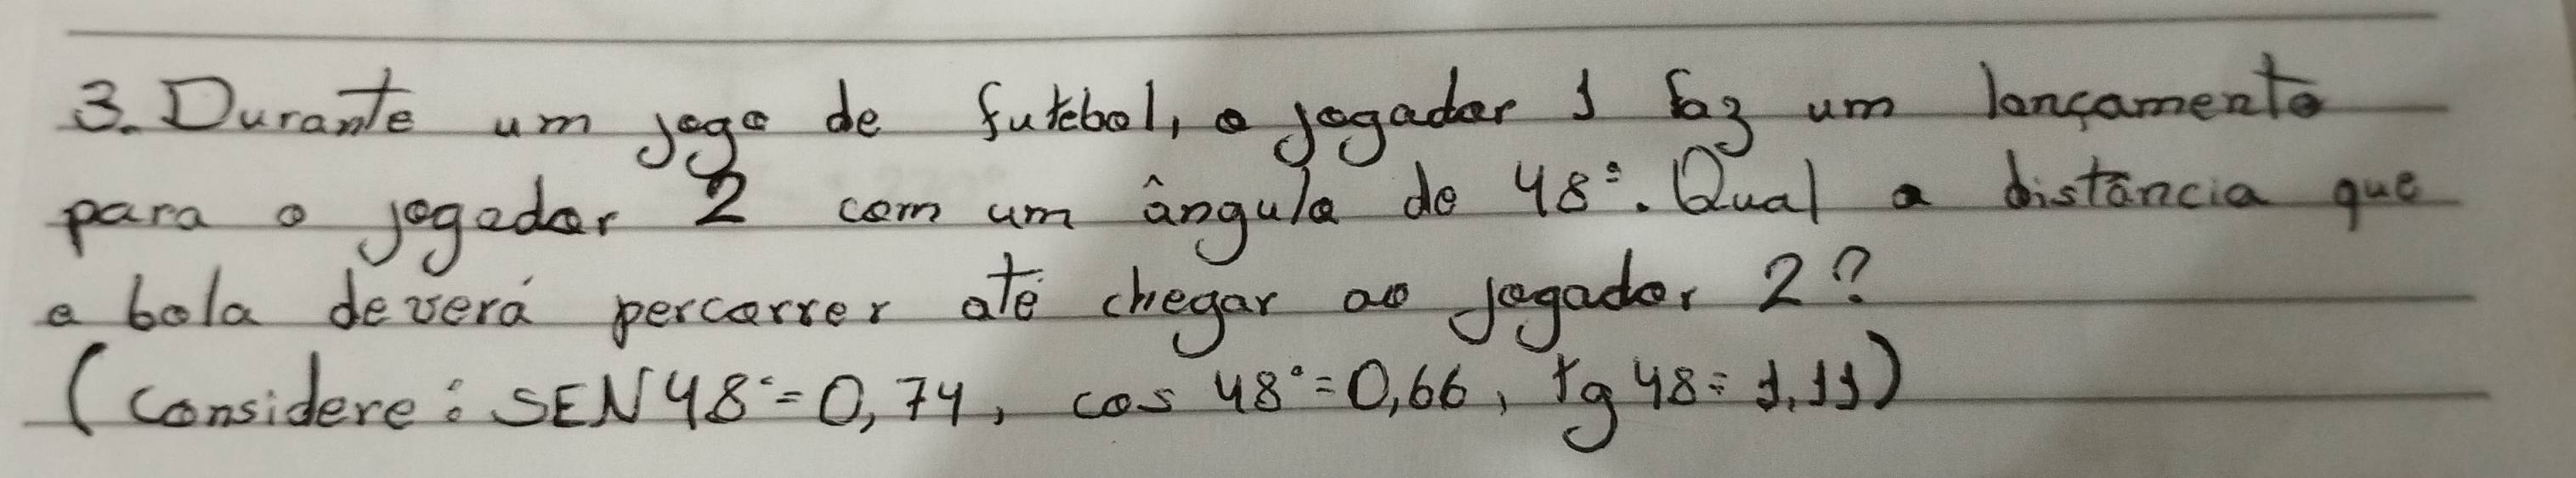 3. Durante um jogo de futebol, o jogador 1 faz um lançamento
para o jogador 2 com um ângulo de 48°. Qual a distância que
a bola deverá percorrer até chegar ao jogador 2?
(Considere: SEN 48° = 0,74, cos 48° = 0,66, tg 48 = 1,11)